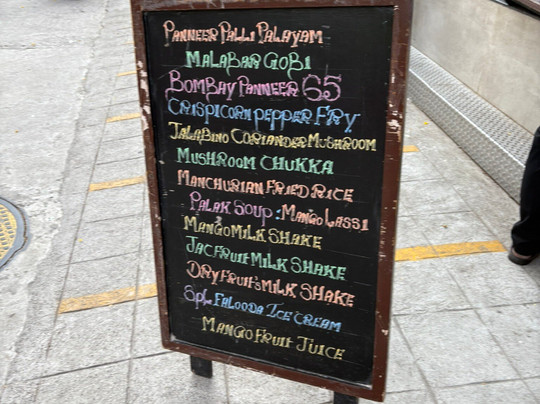 Panneer Palli Palayam
Malabar Gobi
Bombay Panneer 65
Crispicorn Pepper Fry
Jalabino Coriander Mushroom
Mushroom Chukka
Manchurian Fried Rice
Palak Soup : Mango Lassi
Mango Milk Shake
Jac Fruit Milk Shake
Dry Fruit's Milk Shake
Spl. Falooda Ice Cream
Mango Fruit Juice